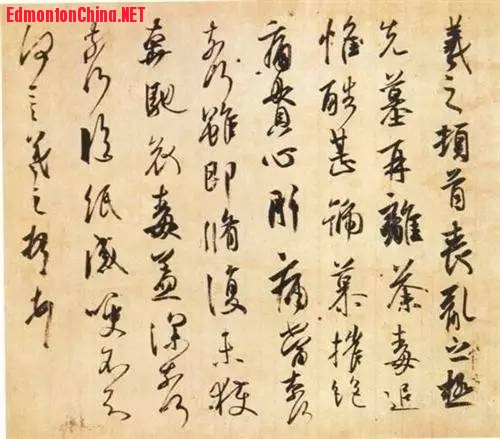 EdmontonChina.NET
羲之頓首喪亂之極
先墓再離荼毒追
惟酷甚號慕摧絕
痛貫心肝痛當奈何
奈何雖即脩復未獲
奔馳哀毒益深奈何
奈何臨紙感哽不知
何言羲之頓首